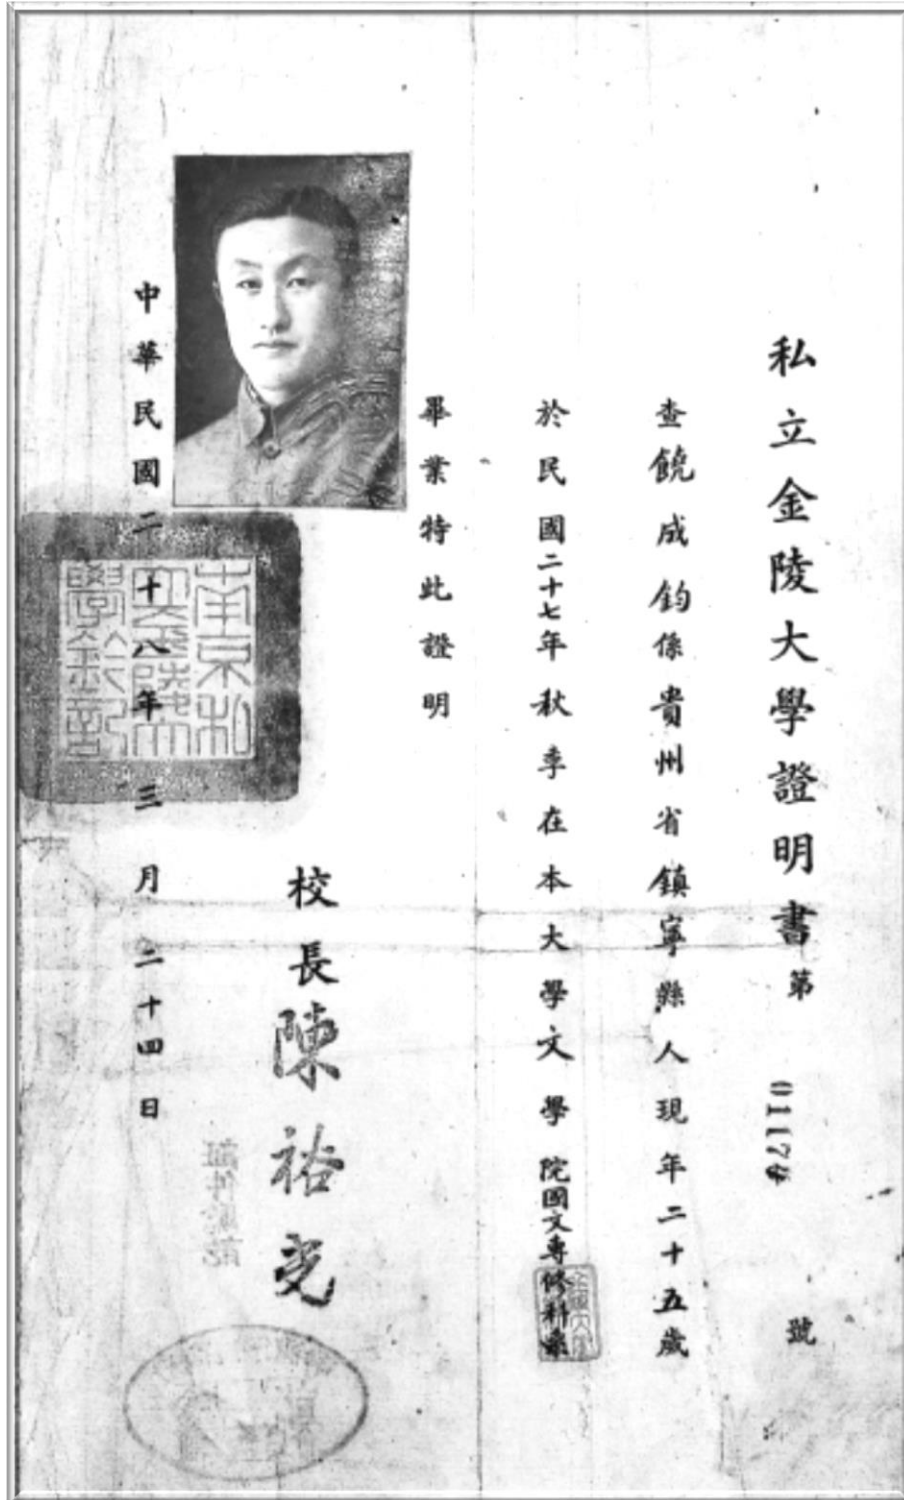 私立金陵大學證明書第 01178 號
查饒成鈞係貴州省鎮寧縣人現年二十五歲
於民國二十七年秋季在本大學文學院國文專修科系
畢業特此證明
校長陳裕光
中華民國二十八年三月二十四日
南京私
立金陵大
學鈐記